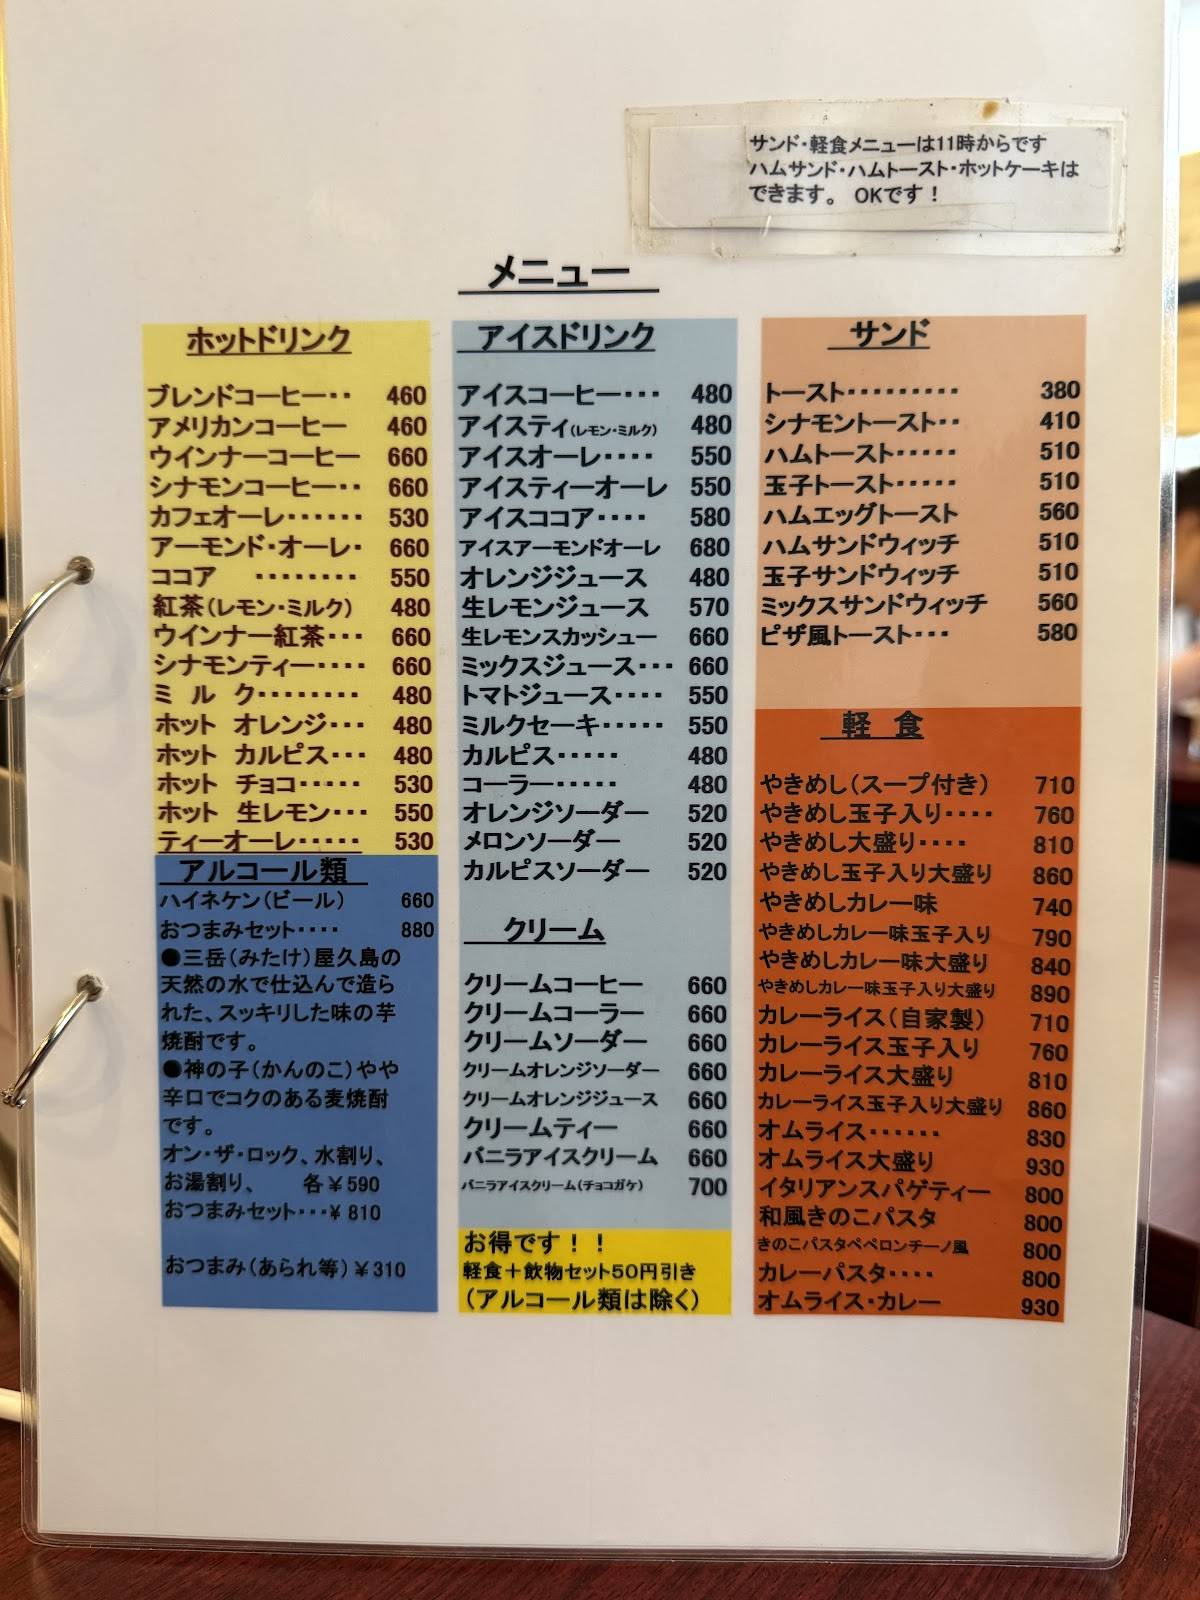 サンド・軽食メニューは11時からです
ハムサンド・ハムトースト・ホットケーキは
できます。 OKです！
メニュー
ホットドリンク
ブレンドコーヒー‥ 460
アメリカンコーヒー 460
ウインナーコーヒー 660
シナモンコーヒー‥ 660
カフェオーレ・・・・・・ 530
アーモンド・オーレ・ 660
ココア ・・・・・・・・ 550
紅茶（レモン・ミルク） 480
ウインナー紅茶・・・ 660
シナモンティー・・・・ 660
ミ ル ク・・・・・・・・ 480
ホット オレンジ・・・ 480
ホット カルピス・・・ 480
ホット チョコ・・・・・ 530
ホット 生レモン・・・ 550
ティーオーレ・・・・・ 530
アルコール類
ハイネケン（ビール） 660
おつまみセット・・・・ 880
●三岳（みたけ）屋久島の
天然の水で仕込んで造ら
れた、スッキリした味の芋
焼酎です。
●神の子（かんのこ）やや
辛口でコクのある麦焼酎
です。
オン・ザ・ロック、水割り、
お湯割り、 各￥590
おつまみセット・・・￥810
おつまみ（あられ等）￥310
アイスドリンク
アイスコーヒー・・・ 480
アイスティ（レモン・ミルク） 480
アイスオーレ・・・・ 550
アイスティーオーレ 550
アイスココア・・・・ 580
アイスアーモンドオーレ 680
オレンジジュース 480
生レモンジュース 570
生レモンスカッシュー 660
ミックスジュース・・・ 660
トマトジュース・・・・ 550
ミルクセーキ・・・・・ 550
カルピス・・・・・ 480
コーラー・・・・・ 480
オレンジソーダー 520
メロンソーダー 520
カルピスソーダー 520
クリーム
クリームコーヒー 660
クリームコーラー 660
クリームソーダー 660
クリームオレンジソーダー 660
クリームオレンジジュース 660
クリームティー 660
バニラアイスクリーム 660
バニラアイスクリーム（チョコガケ） 700
お得です！！
軽食＋飲物セット50円引き
（アルコール類は除く）
サンド
トースト・・・・・・・・・ 380
シナモントースト‥ 410
ハムトースト・・・・・ 510
玉子トースト・・・・・ 510
ハムエッグトースト 560
ハムサンドウィッチ 510
玉子サンドウィッチ 510
ミックスサンドウィッチ 560
ピザ風トースト・・・ 580
軽 食
やきめし（スープ付き） 710
やきめし玉子入り・・・・ 760
やきめし大盛り・・・・ 810
やきめし玉子入り大盛り 860
やきめしカレー味 740
やきめしカレー味玉子入り 790
やきめしカレー味大盛り 840
やきめしカレー味玉子入り大盛り 890
カレーライス（自家製） 710
カレーライス玉子入り 760
カレーライス大盛り 810
カレーライス玉子入り大盛り 860
オムライス・・・・・・ 830
オムライス大盛り 930
イタリアンスパゲティー 800
和風きのこパスタ 800
きのこパスタペペロンチーノ風 800
カレーパスタ・・・・ 800
オムライス・カレー 930